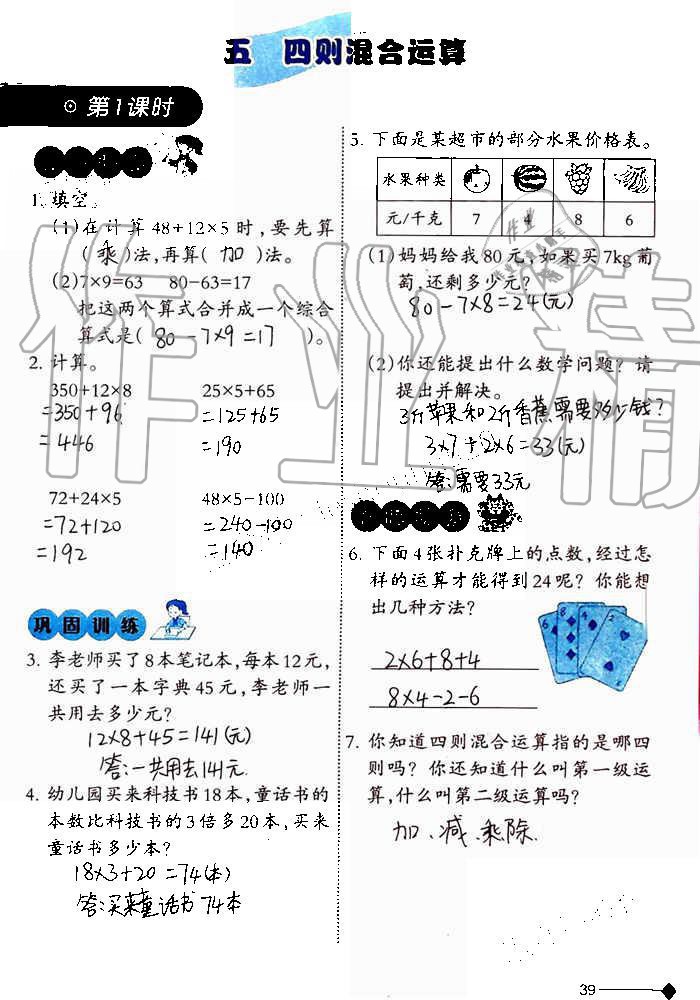 五 四则混合运算
第1课时
1. 填空。
(1)在计算48+12×5时,要先算
(乘)法,再算(加)法。
(2)7×9=63 80-63=17
把这两个算式合并成一个综合
算式是(80-7×9=17)。
2. 计算。
350+12×8 25×5+65
=350+96 =125+65
=446 =190
72+24×5 48×5-100
=72+120 =240-100
=192 =140
巩固训练
3. 李老师买了8本笔记本,每本12元,
还买了一本字典45元,李老师一
共用去多少元?
12×8+45=141(元)
答:一共用去141元.
4. 幼儿园买来科技书18本,童话书的
本数比科技书的3倍多20本,买来
童话书多少本?
18×3+20=74(本)
答:买来童话书74本
5. 下面是某超市的部分水果价格表。
水果种类
元/千克 7 4 8 6
(1)妈妈给我80元,如果买7kg葡
萄,还剩多少元?
80-7×8=24(元)
(2)你还能提出什么数学问题?请
提出并解决。
3斤苹果和2斤香蕉需要多少钱?
3×7+2×6=33(元)
答:需要33元
6. 下面4张扑克牌上的点数,经过怎
样的运算才能得到24呢?你能想
出几种方法?
2×6+8+4
8×4-2-6
7. 你知道四则混合运算指的是哪四
则吗?你还知道什么叫第一级运
算,什么叫第二级运算吗?
加、减、乘、除.
39